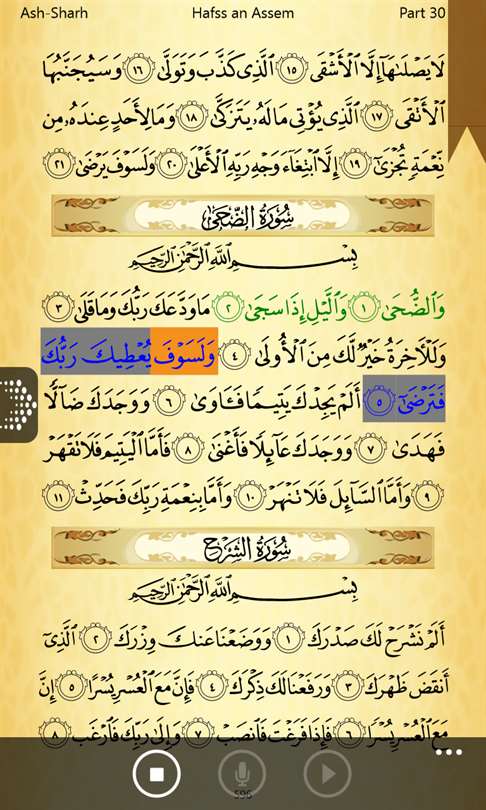 Ash-Sharh Hafss an Assem Part 30
لَا يَصْلَىٰهَآ إِلَّا ٱلْأَشْقَى ١٥ ٱلَّذِى كَذَّبَ وَتَوَلَّىٰ ١٦ وَسَيُجَنَّبُهَا
ٱلْأَتْقَى ١٧ ٱلَّذِى يُؤْتِى مَالَهُۥ يَتَزَكَّىٰ ١٨ وَمَا لِأَحَدٍ عِندَهُۥ مِن
نِّعْمَةٍ تُجْزَىٰٓ ١٩ إِلَّا ٱبْتِغَآءَ وَجْهِ رَبِّهِ ٱلْأَعْلَىٰ ٢٠ وَلَسَوْفَ يَرْضَىٰ ٢١
سُورَةُ الضُّحَىٰ
بِسْمِ ٱللَّهِ ٱلرَّحْمَٰنِ ٱلرَّحِيمِ
وَٱلضُّحَىٰ ١ وَٱلَّيْلِ إِذَا سَجَىٰ ٢ مَا وَدَّعَكَ رَبُّكَ وَمَا قَلَىٰ ٣
وَلَلْأَخِرَةُ خَيْرٌ لَّكَ مِنَ ٱلْأُولَىٰ ٤ وَلَسَوْفَ يُعْطِيكَ رَبُّكَ
فَتَرْضَىٰٓ ٥ أَلَمْ يَجِدْكَ يَتِيمًا فَـَٔاوَىٰ ٦ وَوَجَدَكَ ضَآلًّا
فَهَدَىٰ ٧ وَوَجَدَكَ عَآئِلًا فَأَغْنَىٰ ٨ فَأَمَّا ٱلْيَتِيمَ فَلَا تَقْهَرْ
٩ وَأَمَّا ٱلسَّآئِلَ فَلَا تَنْهَرْ ١٠ وَأَمَّا بِنِعْمَةِ رَبِّكَ فَحَدِّثْ ١١
سُورَةُ الشَّرْحِ
بِسْمِ ٱللَّهِ ٱلرَّحْمَٰنِ ٱلرَّحِيمِ
أَلَمْ نَشْرَحْ لَكَ صَدْرَكَ ١ وَوَضَعْنَا عَنكَ وِزْرَكَ ٢ ٱلَّذِىٓ
أَنقَضَ ظَهْرَكَ ٣ وَرَفَعْنَا لَكَ ذِكْرَكَ ٤ فَإِنَّ مَعَ ٱلْعُسْرِ يُسْرًا ٥ إِنَّ
مَعَ ٱلْعُسْرِ يُسْرًا ٦ فَإِذَا فَرَغْتَ فَٱنصَبْ ٧ وَإِلَىٰ رَبِّكَ فَٱرْغَب ٨
596